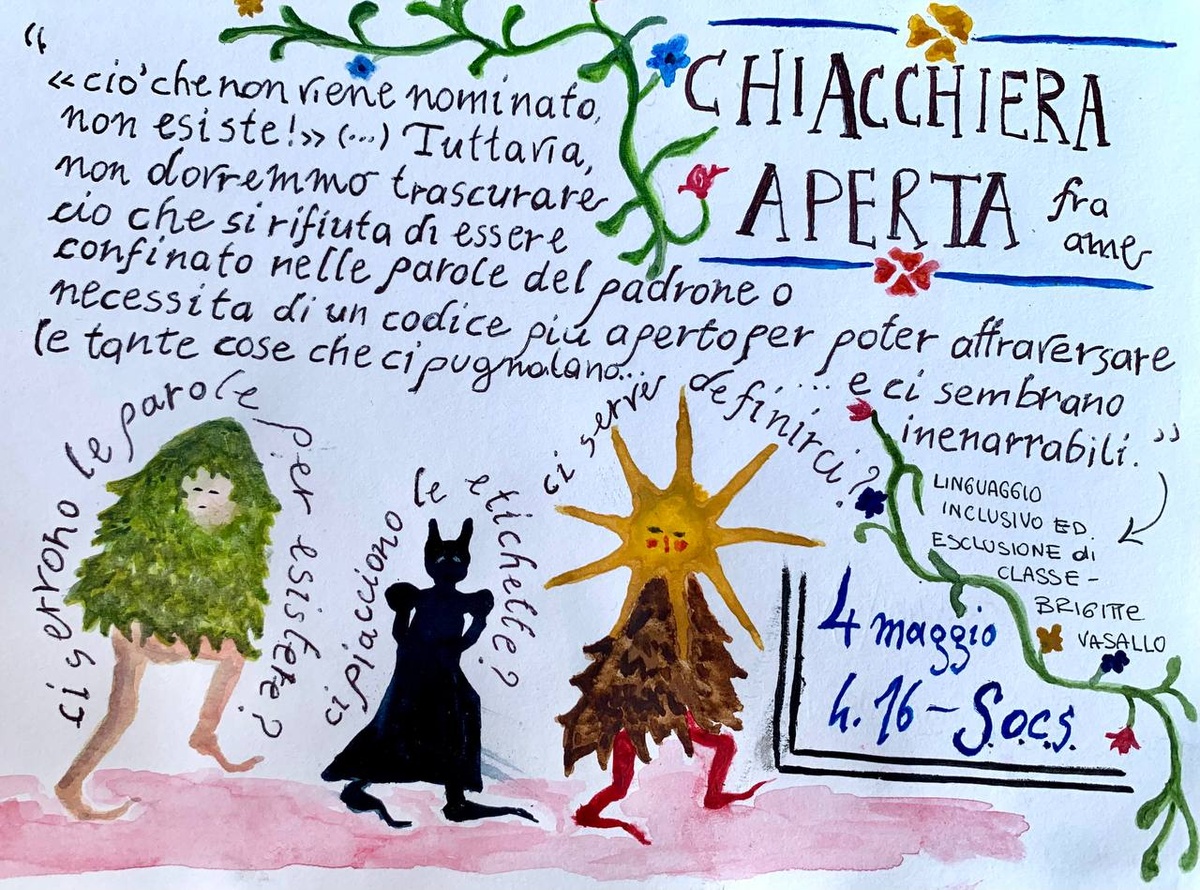 CHIACCHIERA
APERTA fra
ame
“
«cio' che non viene nominato,
non esiste!» (...) Tuttavia,
non dovremmo trascurare
cio che si rifiuta di essere
confinato nelle parole del padrone o
necessita di un codice più aperto per poter attraversare
le tante cose che ci pugnalano...
... e ci sembrano
inenarrabili.”
LINGUAGGIO
INCLUSIVO ED
ESCLUSIONE di
CLASSE -
BRIGITTE
VASALLO
ci servono le parole per esistere?
ci piacciono le etichette?
ci serve definirci?
4 maggio
h. 16 - S.o.c.s.